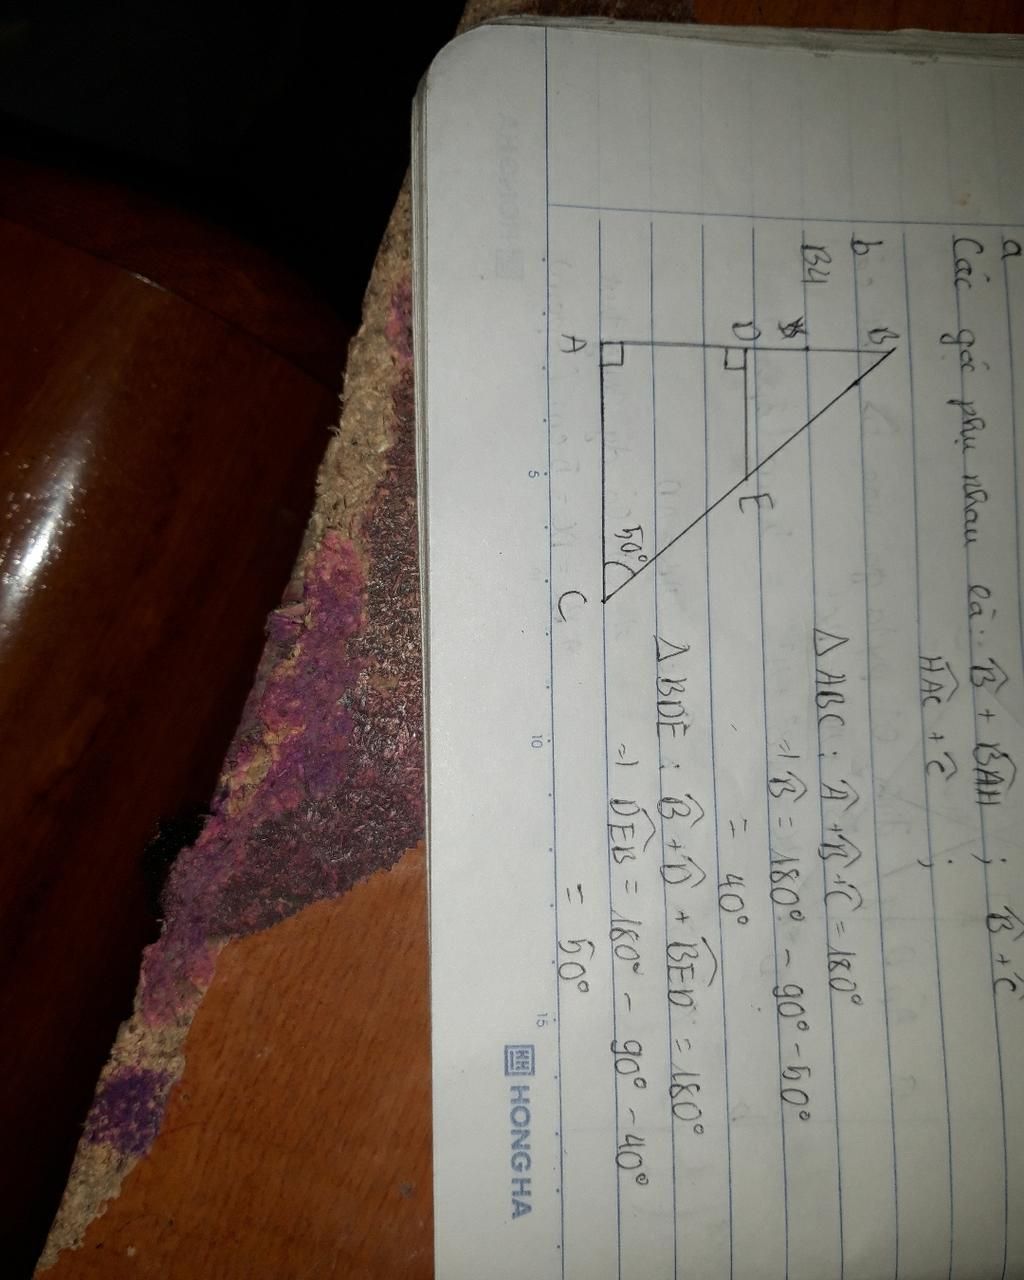 a
Các góc phụ nhau là: B̂ + BÂH ; B̂ + Ĉ
HÂC + Ĉ ;
b
B4
B
D
E
A
C
50°
Δ ABC : Â + B̂ + Ĉ = 180°
=> B̂ = 180° - 90° - 50°
= 40°
Δ BDE : B̂ + D̂ + BÊD = 180°
=> DÊB = 180° - 90° - 40°
= 50°
5
10
15
HH HONG HA